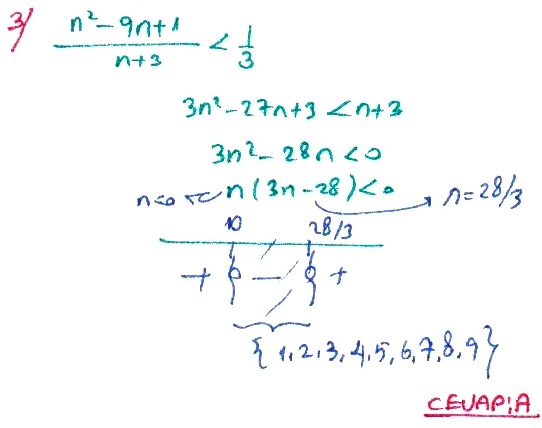 3) (n² - 9n + 1)/(n + 3) < 1/3
3n² - 27n + 3 < n + 3
3n² - 28n < 0
n=0 n(3n - 28) < 0 → n = 28/3
0 28/3
+ − +
{1, 2, 3, 4, 5, 6, 7, 8, 9}
CEVAP: A